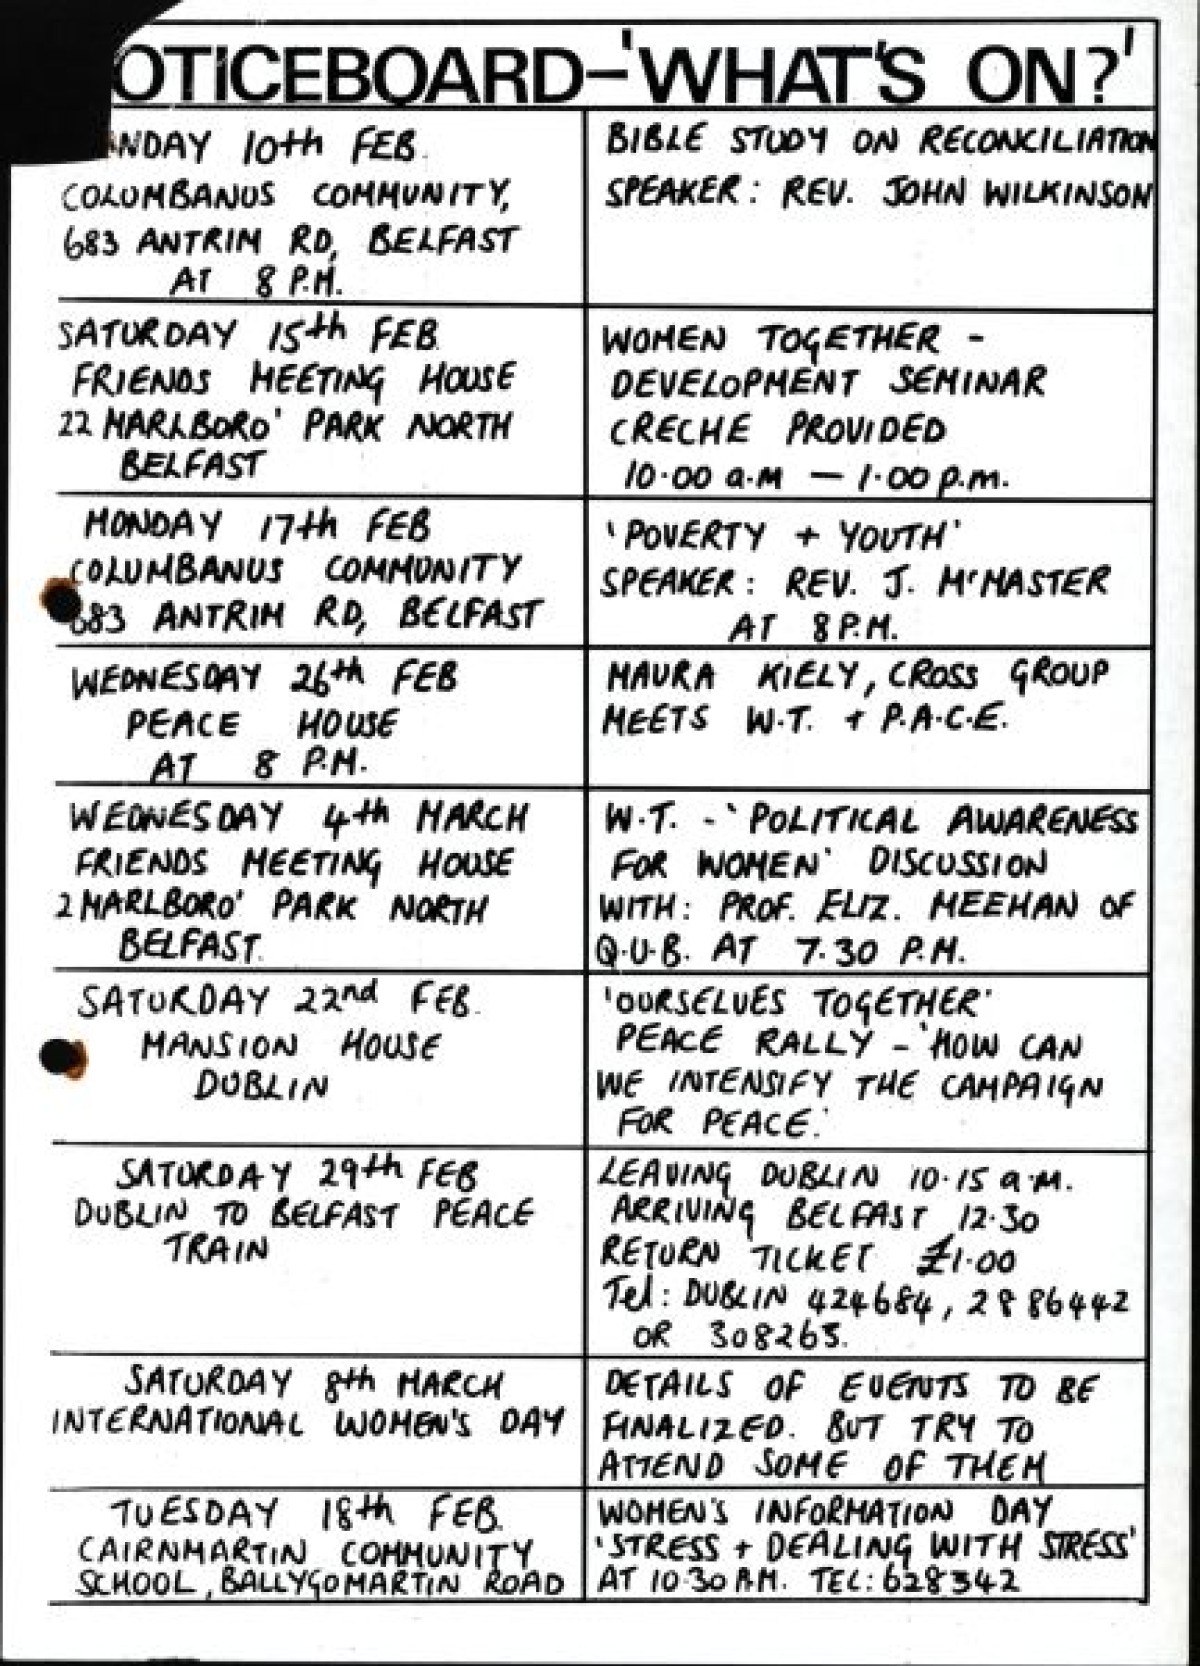 OTICEBOARD-'WHAT'S ON?'
NDAY 10th FEB.
COLUMBANUS COMMUNITY,
683 ANTRIM RD, BELFAST
AT 8 P.M.
BIBLE STUDY ON RECONCILIATION
SPEAKER: REV. JOHN WILKINSON
SATURDAY 15th FEB.
FRIENDS MEETING HOUSE
22 MARLBORO' PARK NORTH
BELFAST
WOMEN TOGETHER -
DEVELOPMENT SEMINAR
CRECHE PROVIDED
10.00 a.m — 1.00 p.m.
MONDAY 17th FEB
COLUMBANUS COMMUNITY
683 ANTRIM RD, BELFAST
'POVERTY + YOUTH'
SPEAKER: REV. J. McMASTER
AT 8 P.M.
WEDNESDAY 26th FEB
PEACE HOUSE
AT 8 P.M.
MAURA KIELY, CROSS GROUP
MEETS W.T. + P.A.C.E.
WEDNESDAY 4th MARCH
FRIENDS MEETING HOUSE
2 MARLBORO' PARK NORTH
BELFAST.
W.T. - 'POLITICAL AWARENESS
FOR WOMEN' DISCUSSION
WITH: PROF. ELIZ. MEEHAN OF
Q.U.B. AT 7.30 P.M.
SATURDAY 22nd FEB.
MANSION HOUSE
DUBLIN
'OURSELVES TOGETHER'
PEACE RALLY - 'HOW CAN
WE INTENSIFY THE CAMPAIGN
FOR PEACE.'
SATURDAY 29th FEB
DUBLIN TO BELFAST PEACE
TRAIN
LEAVING DUBLIN 10.15 a.m.
ARRIVING BELFAST 12.30
RETURN TICKET £1.00
Tel: DUBLIN 424684, 2886442
OR 308265.
SATURDAY 8th MARCH
INTERNATIONAL WOMEN'S DAY
DETAILS OF EVENTS TO BE
FINALIZED. BUT TRY TO
ATTEND SOME OF THEM
TUESDAY 18th FEB.
CAIRNMARTIN COMMUNITY
SCHOOL, BALLYGOMARTIN ROAD
WOMEN'S INFORMATION DAY
'STRESS + DEALING WITH STRESS'
AT 10.30 A.M. TEL: 628342